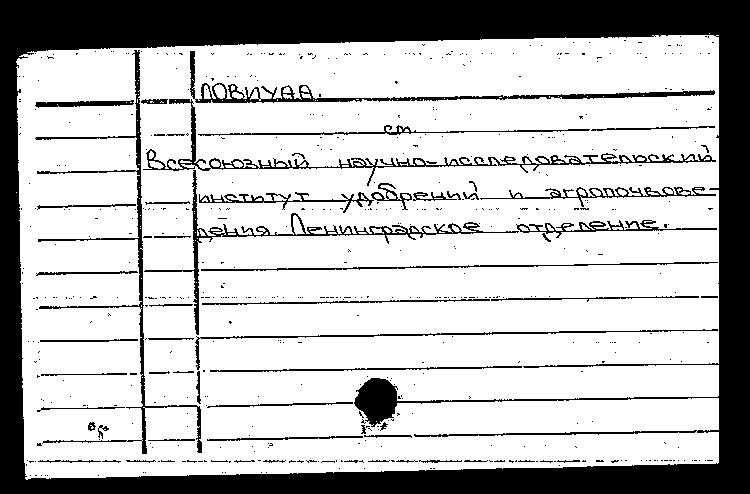 ЛОВИУАА.
см.
Всесоюзный научно-исследовательский
институт удобрений и агропочвове-
дения. Ленинградское отделение.